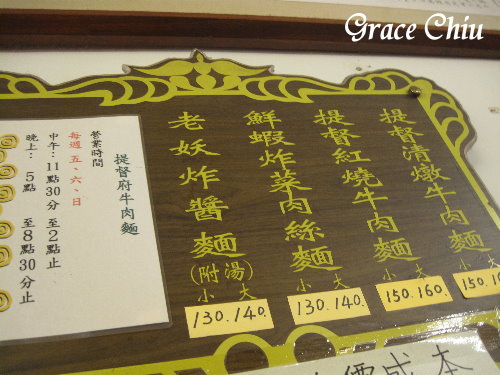 Grace Chiu
提督清燉牛肉麵
小 大
150.160.
提督紅燒牛肉麵
小 大
150.160.
鮮蝦炸菜肉絲麵
小 大
130.140.
老妖炸醬麵
(附湯)
小 大
130.140.
提督府牛肉麵
營業時間
每週五、六、日
中午：11點30分 至2點止
晚上：5點 至8點30分止
成本